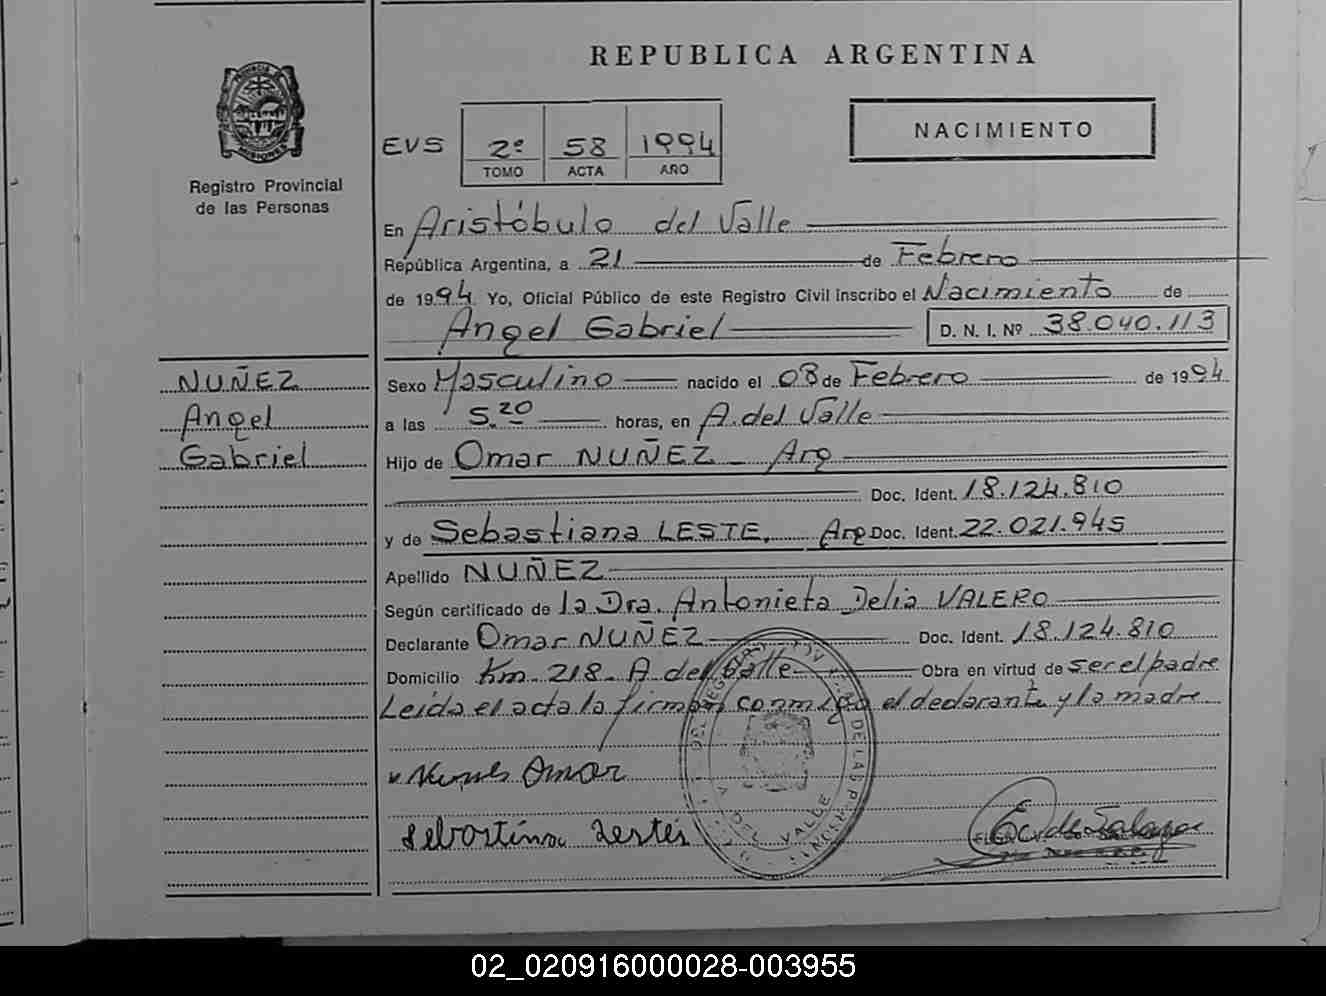 REPUBLICA ARGENTINA
PROVINCIA DE MISIONES
Registro Provincial
de las Personas
EVS 2º 58 1994
TOMO ACTA AÑO
NACIMIENTO
En Aristóbulo del Valle
República Argentina, a 21 de Febrero
de 1994. Yo, Oficial Público de este Registro Civil inscribo el Nacimiento de
Angel Gabriel D. N. I. Nº 38.040.113
NUÑEZ
Angel
Gabriel
Sexo Masculino nacido el 08 de Febrero de 1994
a las 5.20 horas, en A. del Valle
Hijo de Omar NUÑEZ - Arg
Doc. Ident. 18.124.810
y de Sebastiana LESTE, Arg Doc. Ident. 22.021.945
Apellido NUÑEZ
Según certificado de la Dra. Antonieta Delia VALERO
Declarante Omar NUÑEZ Doc. Ident. 18.124.810
Domicilio Km. 218 - A del Valle Obra en virtud de ser el padre
Leída el acta la firman conmigo el declarante y la madre
Nunes Omar
Sebostina Lestes
DEL VALLE
02_020916000028-003955